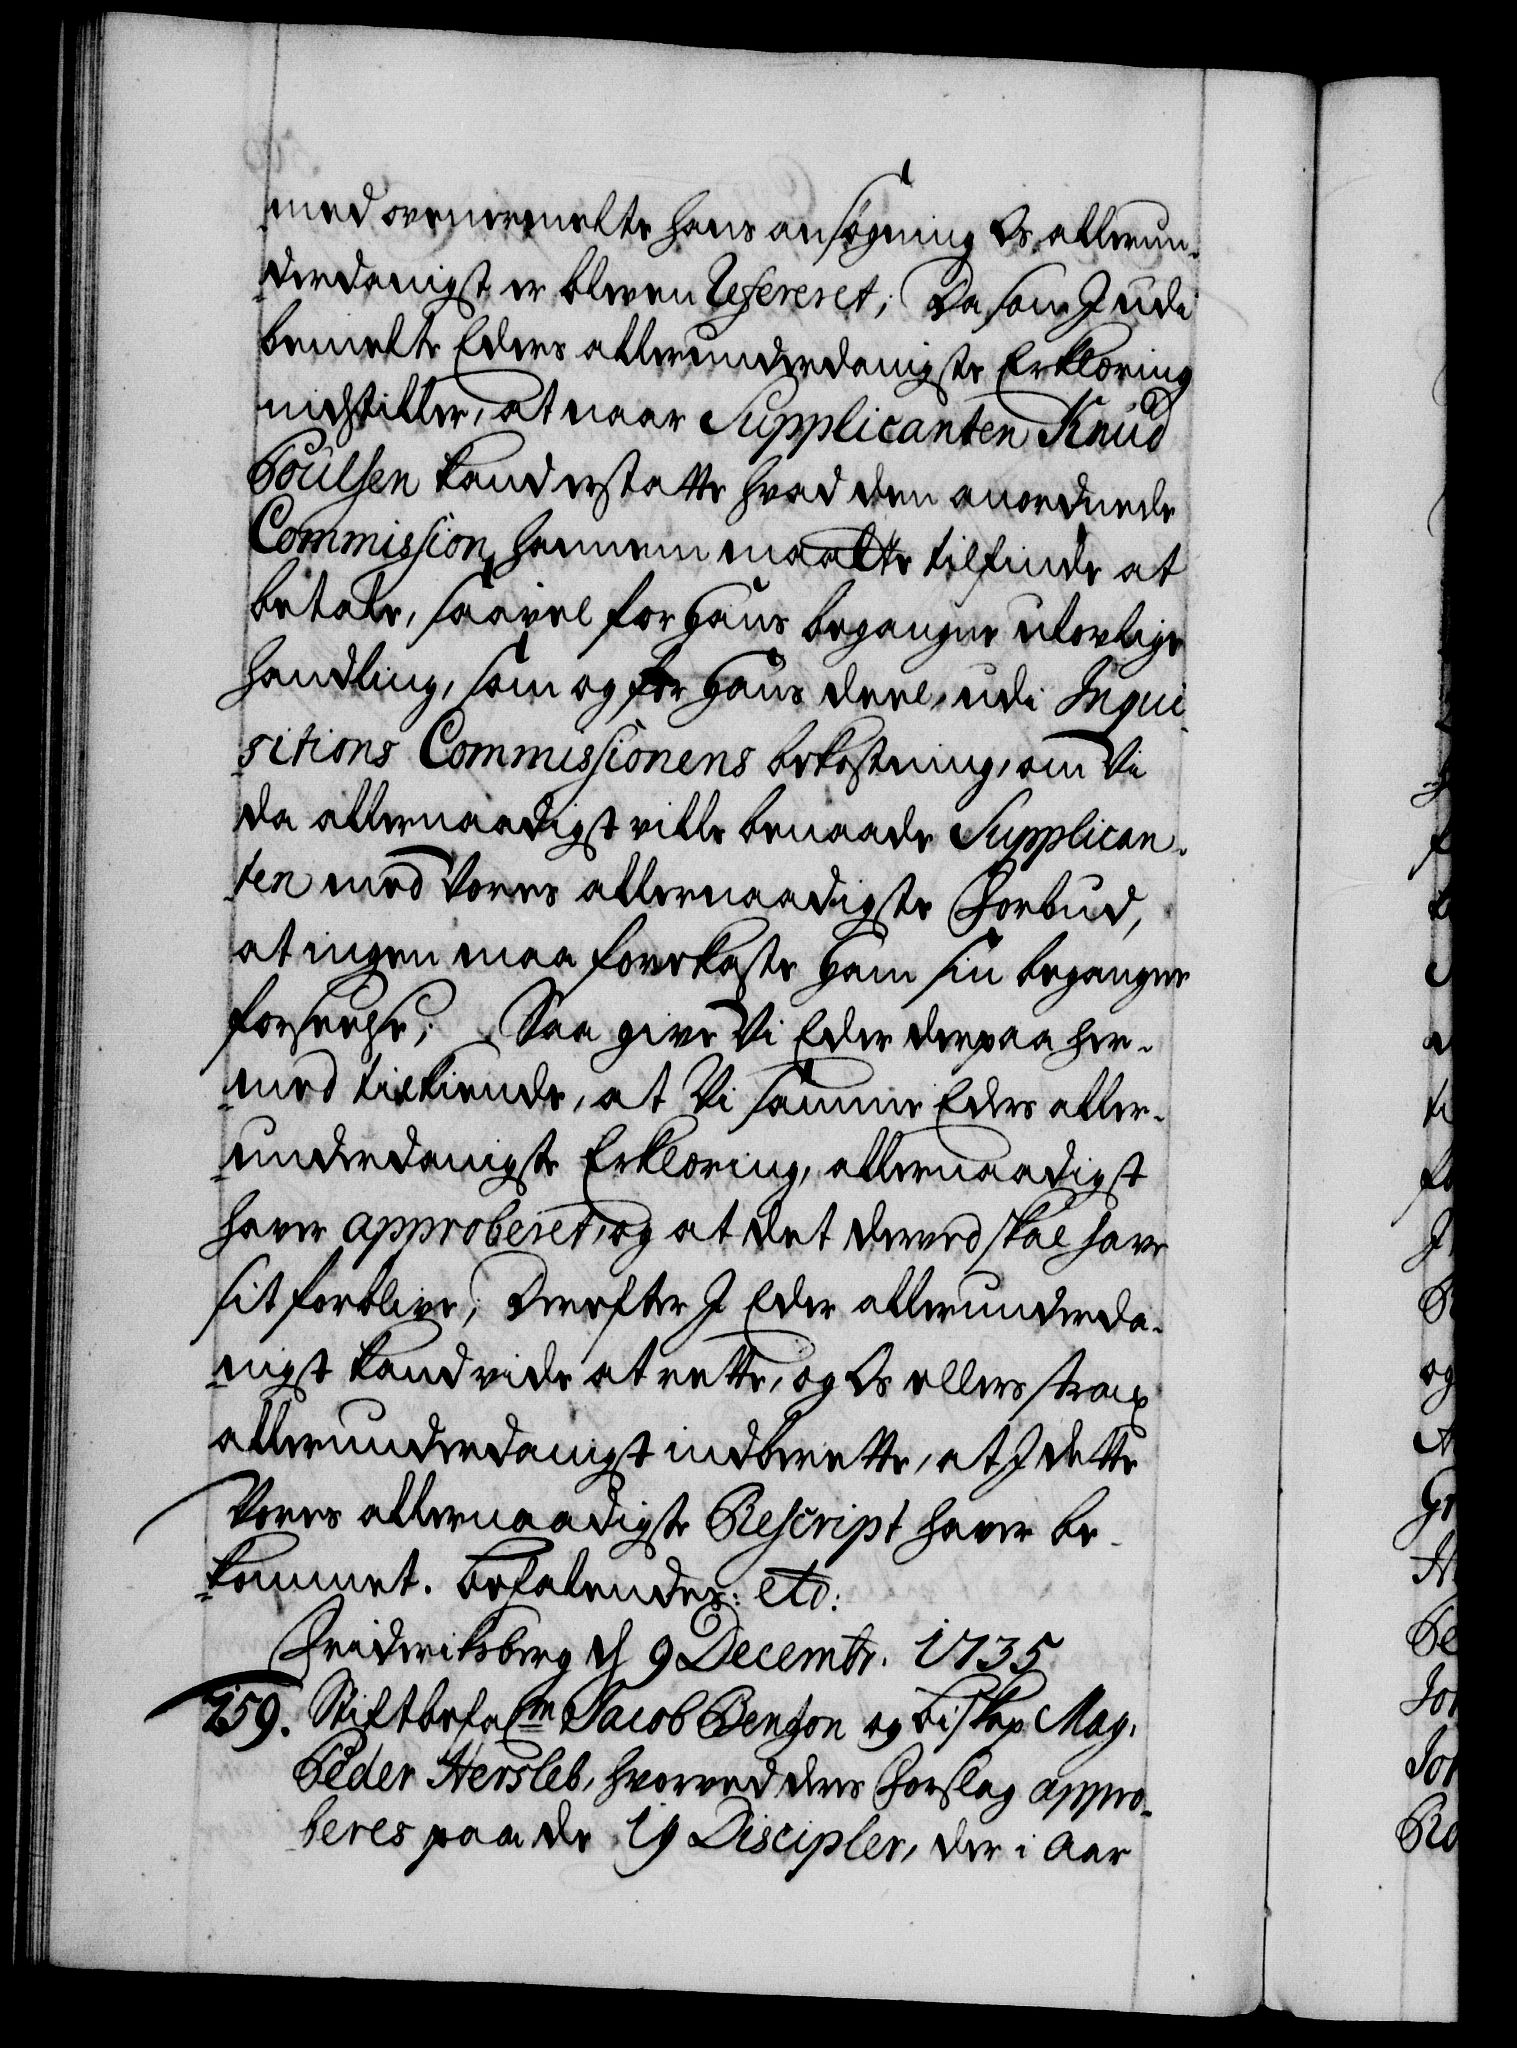 med ovenermelte hans ansøgning Os allerun-
derdanigst er bleven Refereret; Da som I udi
bemelte Eders allerunderdanigste Erklæring
indstiller, at naar Supplicanten Knud
Poulsen kand erstatte hvad den anordnede
Commission hannem maatte tilfinde at
betale, saavel for hans begangne ulovlige
handling, som og for hans deel, udi Inqui-
sitions Commissionens bekostning, om Vi
da allernaadigst ville benaade Supplican-
ten med Vores allernaadigste Forbud,
at ingen maa forekaste ham sin begangne
forseelse; Saa give Vi Eder derpaa her-
med tilkiende, at Vi samme Eders aller-
underdanigste Erklæring, allernaadigst
haver approberet, og at det derved skal have
sit forblive; Derefter I Eder allerunderda-
nigst kand vide at rette, og Os ellers strax
allerunderdanigst indberette, at I dette
Vores allernaadigste Rescript haver be-
kommet. Befalendes: etc:
Friderichsberg d 9 Decembr. 1735
259. Stiftbefalm Jacob Benzon og biskop Mag.
Peder Hersleb, hvorved deres Forslag appro-
beres paa de 19 Discipler, der i Aar